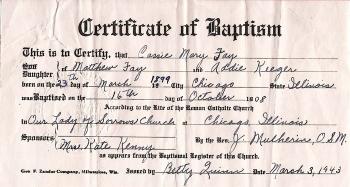 Certificate of Baptism
This is to Certify, that Cassie Mary Fay
Son
Daughter } of Matthew Fay and Addie Keeger
born on the 23th day of March 1899 in City Chicago State Illinois
was Baptized on 16th day of October 1908
According to the Rite of the Roman Catholic Church
In Our Lady of Sorrows Church at Chicago, Illinois
Sponsors { By the Rev. J. Mulherin O.S.M.
Mrs. Kate Kenny
as appears from the Baptismal Register of this Church.
Geo. F. Zander Company, Milwaukee, Wis. Issued by Betty Date March 3, 1943